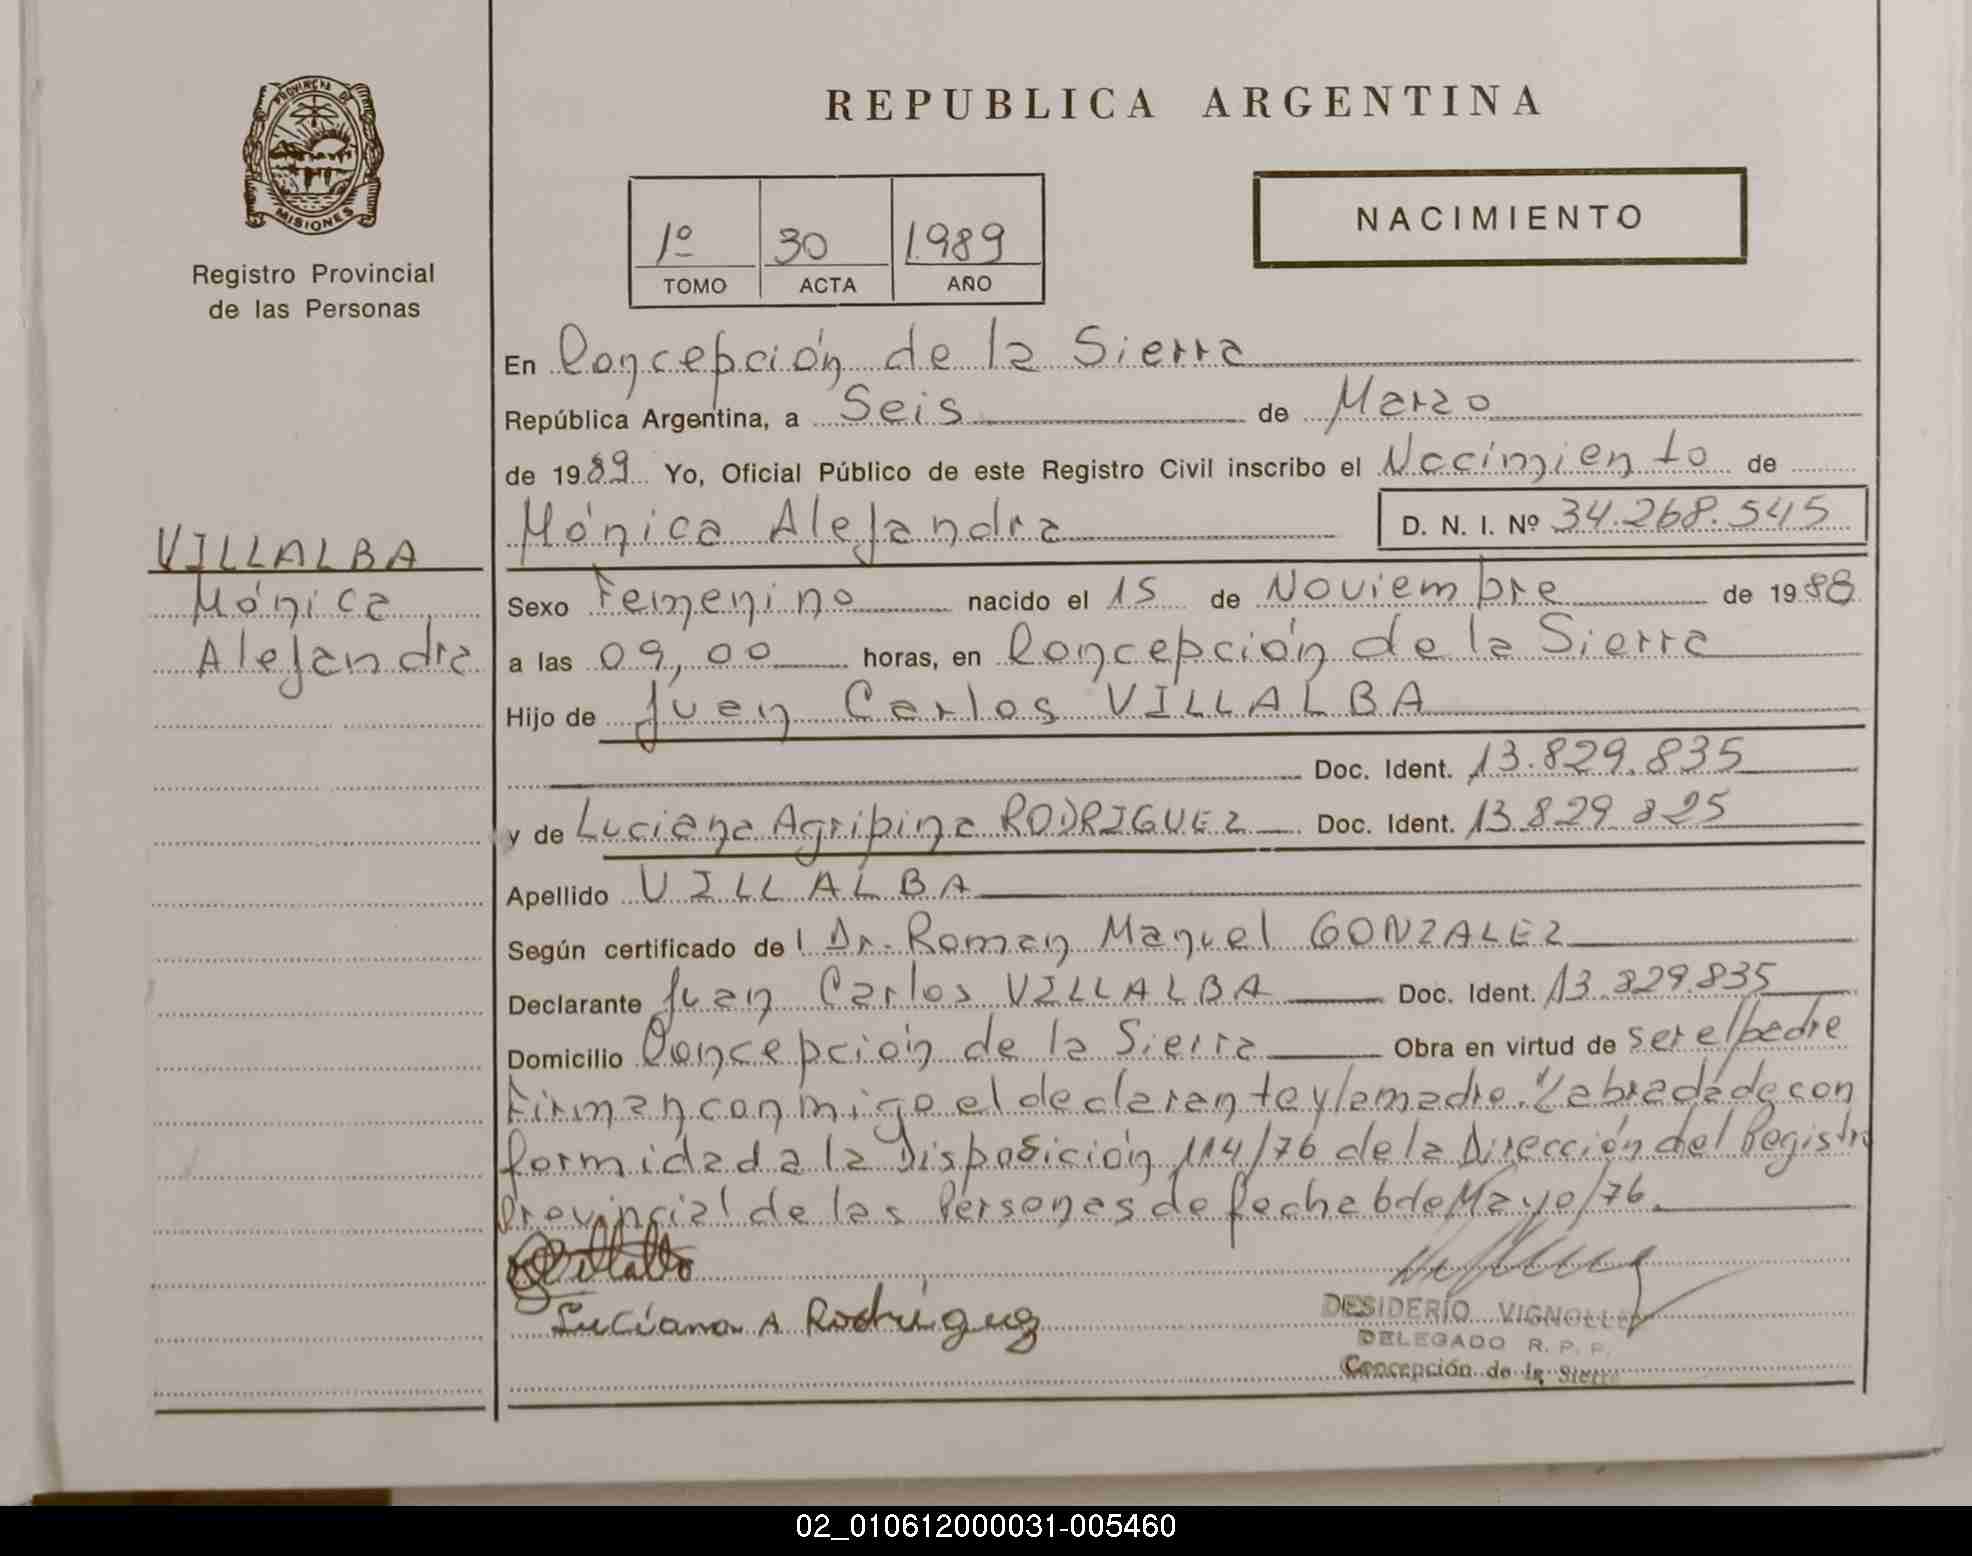 PROVINCIA DE
MISIONES
Registro Provincial
de las Personas
REPUBLICA ARGENTINA
NACIMIENTO
1º 30 1.989
TOMO ACTA AÑO
En Concepción de la Sierra
República Argentina, a Seis de Marzo
de 1989 Yo, Oficial Público de este Registro Civil inscribo el Nacimiento de
Mónica Alejandra D. N. I. Nº 34.268.545
VILLALBA
Mónica
Alejandra
Sexo Femenino nacido el 15 de Noviembre de 1988
a las 09,00 horas, en Concepción de la Sierra
Hijo de Juan Carlos VILLALBA
Doc. Ident. 13.829.835
y de Luciana Agripina RODRIGUEZ Doc. Ident. 13.829.825
Apellido VILLALBA
Según certificado del Dr. Roman Manuel GONZALEZ
Declarante Juan Carlos VILLALBA Doc. Ident. 13.829.835
Domicilio Concepción de la Sierra Obra en virtud de ser el padre
Firman conmigo el declarante y la madre. Labrada de con
formidad a la Disposición 114/76 de la Dirección del Registro
Provincial de las Personas de fecha 6 de Mayo/76.
Luciana A Rodriguez
DESIDERIO VIGNOLLES
DELEGADO R. P. P.
Concepción de la Sierra
02_010612000031-005460